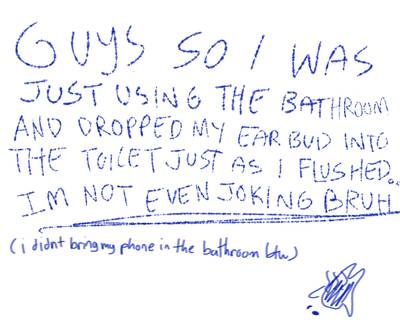 GUYS SO I WAS
JUST USING THE BATHROOM
AND DROPPED MY EAR BUD INTO
THE TOILET JUST AS I FLUSHED..
IM NOT EVEN JOKING BRUH
(i didnt bring my phone in the bathroom btw)